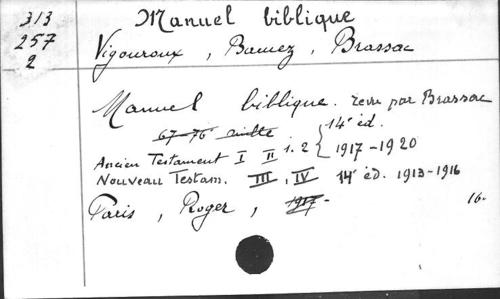 313 Manuel biblique
257
2 Vigouroux, Bacuez, Brassac
Manuel biblique. revu par Brassac
67-76 mille
Ancien Testament I II 1.2 { 14e éd.
1917-1920
Nouveau Testam. III, IV 14e éd. 1913-1916
Paris, Roger, 1917.
16.